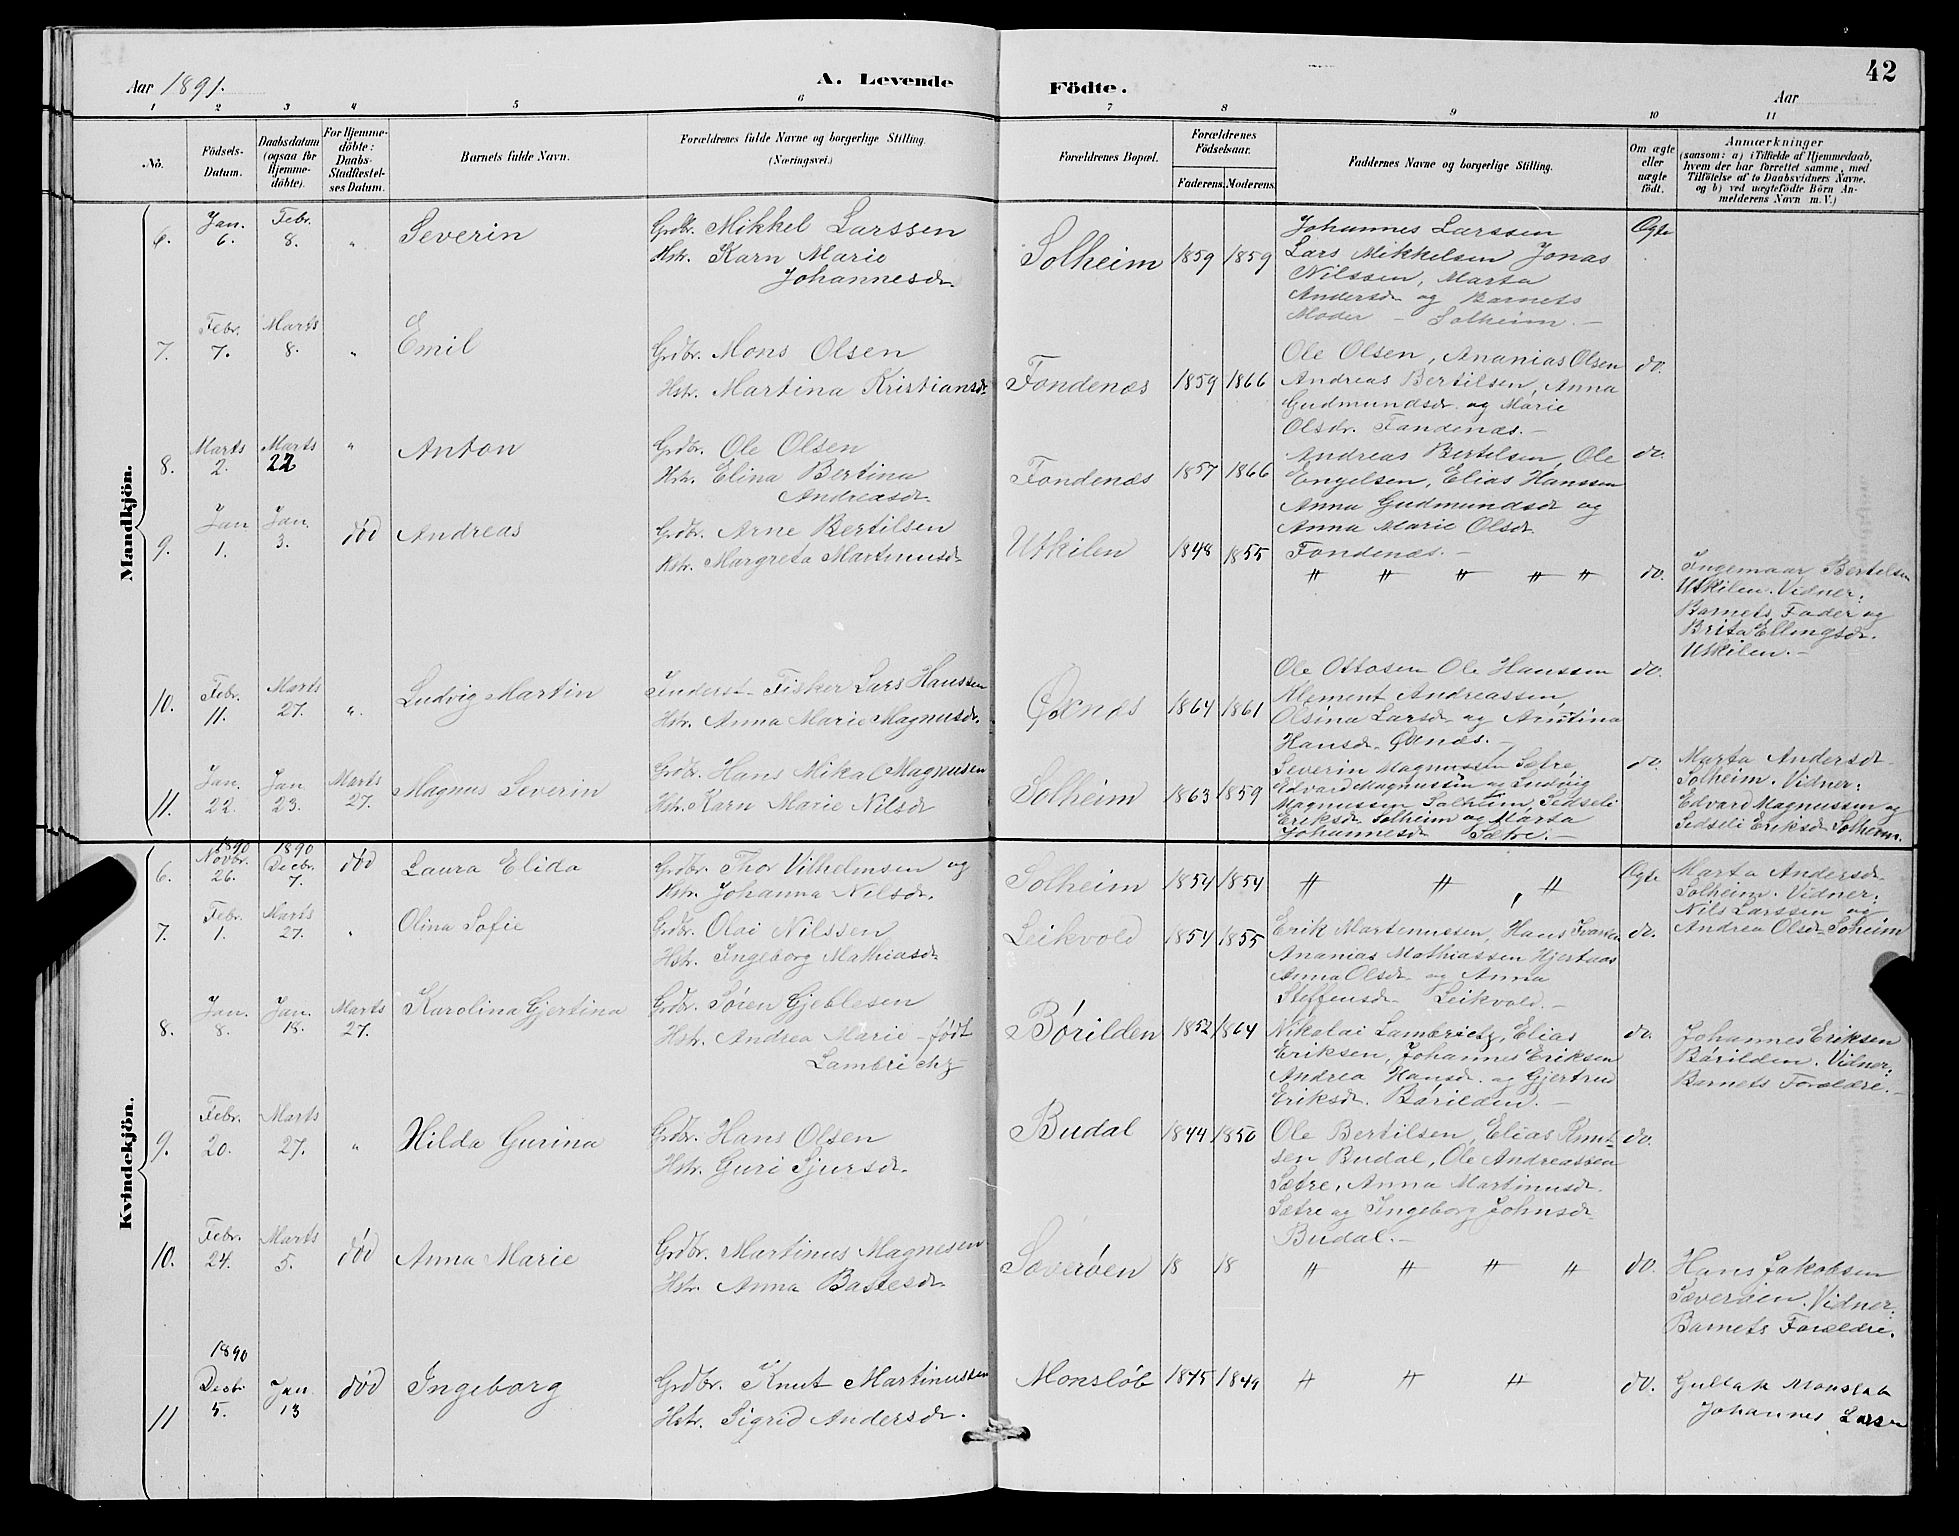 42
Aar 1891.
A. Levende Födte.
Aar
1 2 3 4 5 6 7 8 9 10 11
No.
Födsels-Datum.
Daabsdatum (ogsaa for Hjemme-döbte).
For Hjemme-döbte: Daabs-Stadfæstel-ses Datum.
Barnets fulde Navn.
Forældrenes fulde Navne og borgerlige Stilling.
(Næringsvei.)
Forældrenes Bopæl.
Forældrenes Födselsaar.
Faderens. Moderens.
Faddernes Navne og borgerlige Stilling.
Om ægte eller uægte födt.
Anmærkninger
(saasom: a) i Tilfælde af Hjemmedaab,
hvem der har forrettet samme, med
Tilföielse af to Daabsvidners Navne.
og b) ved uægtefödte Börn An-
melderens Navn m. V.)
Mandkjön.
6. Jan. 6. Febr. 8. " Severin
Grdbr. Mikkel Larssen
Hstr. Karn Marie
Johannesdr.
Solheim 1859 1859
Johannes Larssen
Lars Mikkelsen Jonas
Nilssen, Marta
Andersdr og Barnets
Moder - Solheim. -
Ægte
7. Febr. 7. Marts 8. " Emil
Grdbr. Mons Olsen
Hstr. Martina Kristiansdr
Fondenæs 1859 1866
Ole Olsen, Ananias Olsen
Andreas Bertilsen, Anna
Gudmundsdr og Marie
Olsdr. Fondenæs. -
do.
8. Marts 2. Marts 22 " Anton
Grdbr. Ole Olsen
Hstr. Elina Bertina
Andreasdr
Fondenæs 1857 1866
Andreas Bertelsen, Ole
Engelsen, Elias Hanssen
Anna Gudmundsdr og
Anna Marie Olsdr
Fondenæs. -
do.
9. Jan 1. Jan. 3. død Andreas
Grdbr. Arne Bertilsen
Hstr. Margreta Martinusdr
Utkilen 1848 1855
" " " " "
do.
Ingemaar Bertelsen
Utkilen. Vidner:
Barnets Fader og
Brita Ellingsdr.
Utkilen. -
10. Febr. 11. Marts 27. " Ludvig Martin
Inderst - Fisker Lars Hanssen
Hstr. Anna Marie Magnusdr.
Øxnæs 1864 1861
Ole Ottosen Ole Hanssen
Klement Andreassen,
Olsina Larsdr og Arutina
Hansdr. Øxnæs. -
do.
11. Jan. 22. Jan 23. Marts 27. Magnus Severin
Grdbr. Hans Mikal Magnusen
Hstr. Karn Marie Nilsdr
Solheim 1863 1859
Severin Magnussen Sætre
Edvard Magnussen og Ludvig
Magnussen Solheim, Sedseli
Eriksdr Solheim og Marta
Johannesdr Sætre. -
do.
Marta Andersdr
Solheim. Vidner:
Edvard Magnussen og
Sedseli Eriksdr Solheim.
Kvindekjön.
6. 1890 Novbr. 26. 1890 Decbr. 7. død Laura Elida
Grdbr. Thor Vilhelmsen og
Hstr. Johanna Nilsdr.
Solheim 1854 1854
" " "
Ægte
Marta Andersdr
Solheim. Vidner:
Nils Larssen og
Andrea Olsdr Soheim
7. Febr. 1. Marts 27. " Olina Sofie
Grdbr. Olai Nilssen
Hstr. Ingeborg Mathiasdr
Leikvold 1854 1855
Erik Martenussen, Hans Ivarsen
Ananias Mathiassen Hjertnæs
Anna Olsdr og Anna
Steffensdr Leikvold. -
do.
8. Jan. 8. Jan. 18. Marts 27. Karolina Gjertina
Grdbr. Søren Gjeblesen
Hstr. Andrea Marie - født
Lambrichz
Børilden 1852 1864
Nikolai Lambrichz, Elias
Eriksen, Johannes Eriksen
Andrea Hansdr og Gjertrud
Eriksdr. Børilden. -
do.
Johannes Eriksen
Børilden. Vidner:
Barnets Forældre. -
9. Febr. 20. Marts 27. " Hilda Gurina
Grdbr. Hans Olsen
Hstr. Guri Sjursdr.
Budal 1844 1850
Ole Bertilsen, Elias Knut-
sen Budal, Ole Andreassen
Sætre, Anna Martinusdr
Sætre og Ingeborg Johnsdr
Budal. -
do.
10. Febr. 24. Marts 5. død Anna Marie
Grdbr. Martinus Magnesen
Hstr. Anna Bastesdr
Sæverøen 18 18
" " " "
do.
Hans Jakobsen
Sæverøen. Vidner:
Barnets Forældre.
11 1890 Decbr 5. Jan. 13 død Ingeborg
Grdbr. Knut Martinussen
Hstr. Sigrid Andersdr.
Monsløb 1845 1849
" " "
do.
Gullak Monsløb
Johannes Larsen